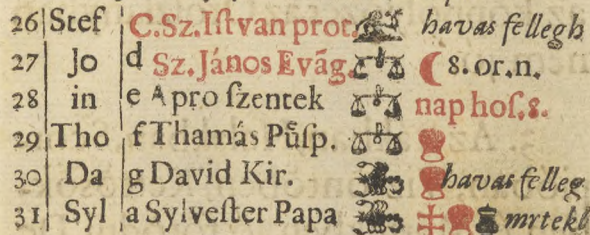 26 Stef C. Sz. Iſtvan prot. havas fellegh
27 Jo d Sz. János Evág. 8. or. n.
28 in e Apro ſzentek nap hoſ. 8.
29 Tho f Thamás Pűſp.
30 Da g David Kir. havas felleg
31 Syl a Sylveſter Papa mrtekl